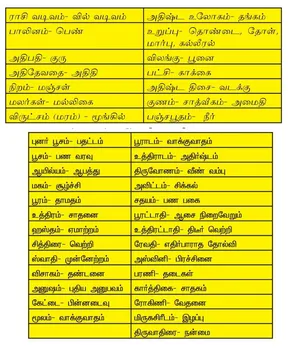 ராசி வடிவம்- வில் வடிவம் அதிஷ்ட உலோகம்- தங்கம்
பாலினம்- பெண் உறுப்பு- தொண்டை, தோள், மார்பு, கல்லீரல்
அதிபதி- குரு விலங்கு- பூனை
அதிதேவதை- அதிதி பட்சி- காக்கை
நிறம்- மஞ்சள் அதிஷ்ட திசை- வடக்கு
மலர்கள்- மல்லிகை குணம்- சாத்வீகம்- அமைதி
விருட்சம் (மரம்) – மூங்கில் பஞ்சபூதம்- நீர்
புனர் பூசம்- பதட்டம் பூராடம்- வாக்குவாதம்
பூசம்- பண வரவு உத்திராடம்- அதிர்ஷ்டம்
ஆயில்யம்- ஆபத்து திருவோணம்- வீண் வம்பு
மகம்- சூழ்ச்சி அவிட்டம்- சிக்கல்
பூரம்- தாமதம் சதயம்- பண பகை
உத்திரம்- சாதனை பூரட்டாதி- ஆசை நிறைவேறும்
ஹஸ்தம்- ஏமாற்றம் உத்திரட்டாதி- திடீர் வெற்றி
சித்திரை- வெற்றி ரேவதி- எதிர்பாராத தோல்வி
ஸ்வாதி- முன்னேற்றம் அஸ்வினி- பிரச்சினை
விசாகம்- தண்டனை பரணி- தடைகள்
அனுஷம்- புதிய அனுபவம் கார்த்திகை- சாதகம்
கேட்டை- பின்னடைவு ரோகிணி- வேதனை
மூலம்- வாக்குவாதம் மிருகசிரீடம்- இழப்பு
திருவாதிரை- நன்மை